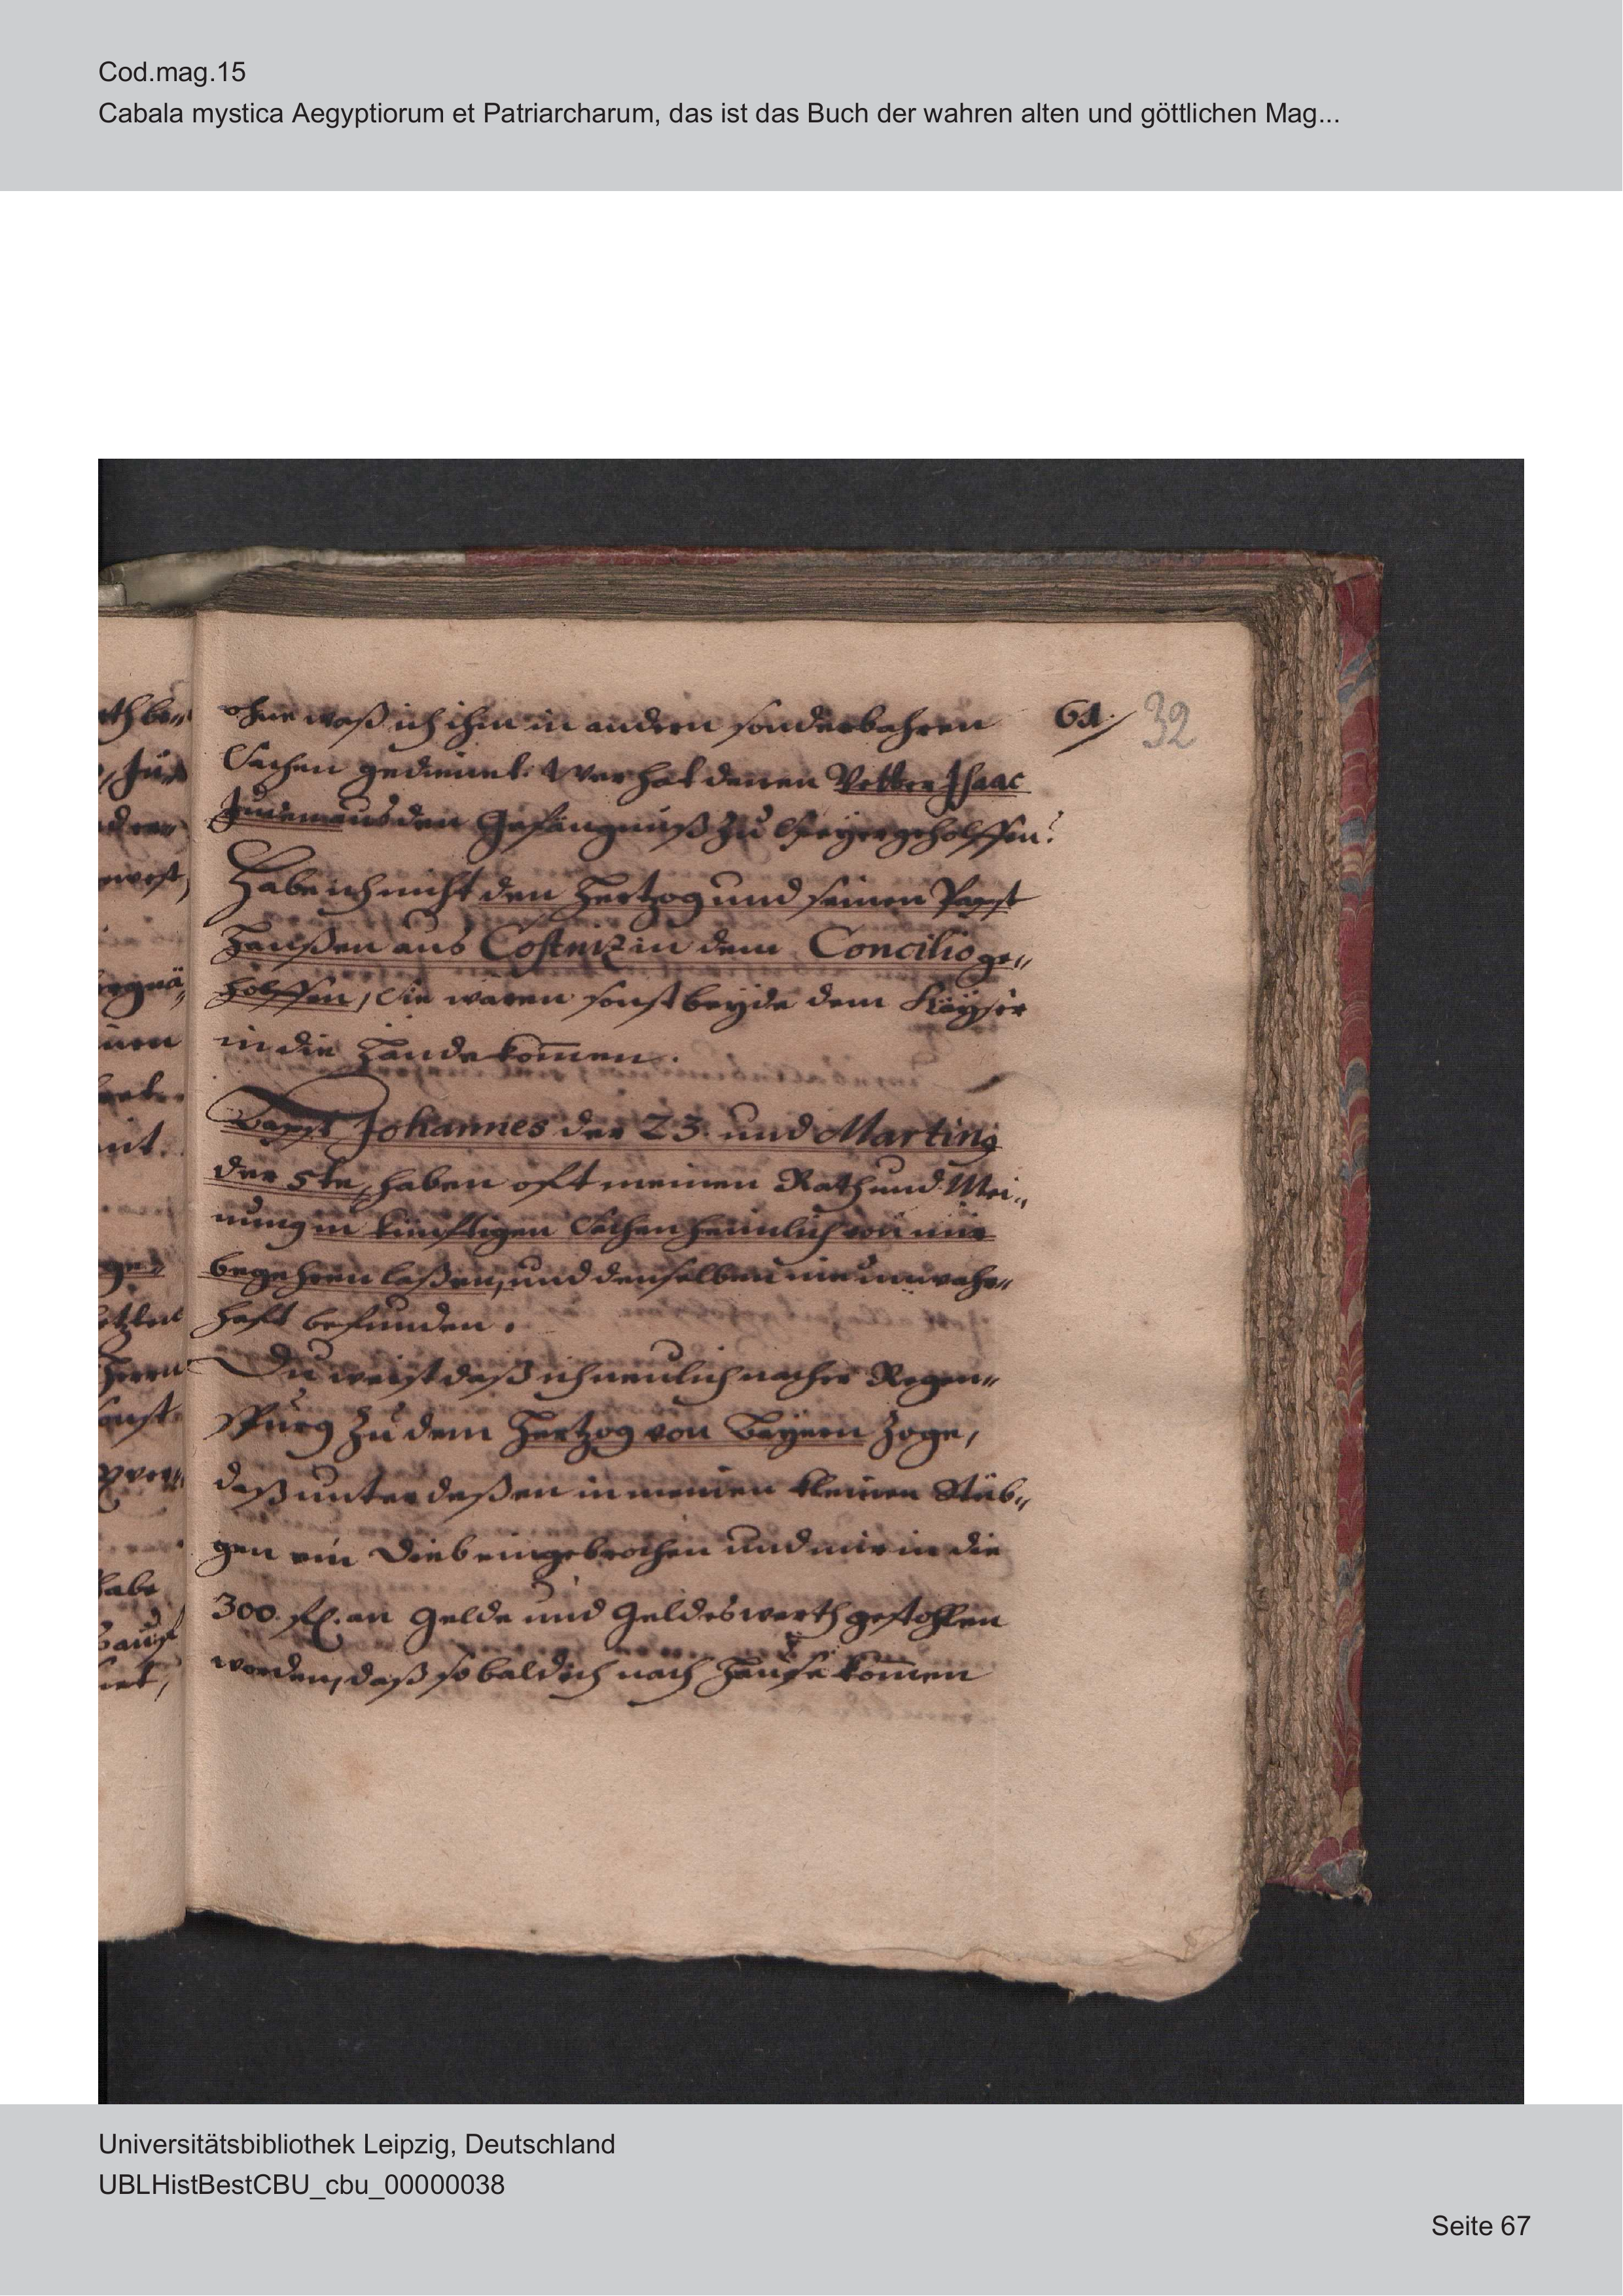 Cod.mag.15
Cabala mystica Aegyptiorum et Patriarcharum, das ist das Buch der wahren alten und göttlichen Mag...
ohne waß ich ihm in andern sonderbahren
61. 32
Sachen gedienet. Wer hat denen Vetter Isaac
Juden aus den Gefängnuß zu Speyer geholffen?
Habe ich nicht den Hertzog und seinen Papst
Hanßen aus Costnitz in dem Concilio ge„
holffen, Sie wären sonst beyde dem Käyser
in die Hände kom̄en.
Bapst Johannes der 23. und Martin9
der 5te, haben oft meinen Rath und Mei„
nung in künfftigen Sachen heimlich von mir
begehren laßen, und denselben nie unwahr„
haft befunden.
Du weist daß ich neulich nacher Regen„
spurg zu dem Hertzog von Bayern zoge,
daß unter deßen in meinen kleinen Stüb„
gen ein Dieb eingebrochen und mir in die
300. fl. an Gelde und Geldeswerth gestohlen
worden, daß so bald ich nach Hause kom̄en
Universitätsbibliothek Leipzig, Deutschland
UBLHistBestCBU_cbu_00000038
Seite 67